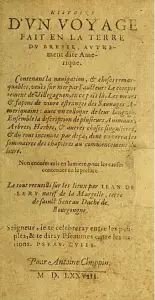 HISTOIRE
D'VN VOYAGE
FAIT EN LA TERRE
DV BRESIL, AVTRE-
ment dite Ame-
rique.
Contenant la nauigation, & choses remar-
quables, veuës sur mer par l'aucteur: Le compor-
tement de Villegagnon, en ce païs là. Les meurs
& façons de viure estranges des Sauuages A-
meriquains: auec vn colloque de leur langage.
Ensemble la description de plusieurs Animaux,
Arbres, Herbes, & autres choses singulieres,
& du tout inconues par deça, dont on verra les
sommaires des chapitres au commencement du
liure.
Non encores mis en lumiere, pour les causes
contenues en la preface.
Le tout recueilli sur les lieux par IEAN DE
LERY natif de la Margelle, terre
de sainct Sene au Duché de
Bourgongne.
Seigneur, ie te celebreray entre les peu-
ples, & te diray Pseaumes entre les na-
tions. PSEAV.
Pour Antoine Chuppin.
M. D. LXXVIII.